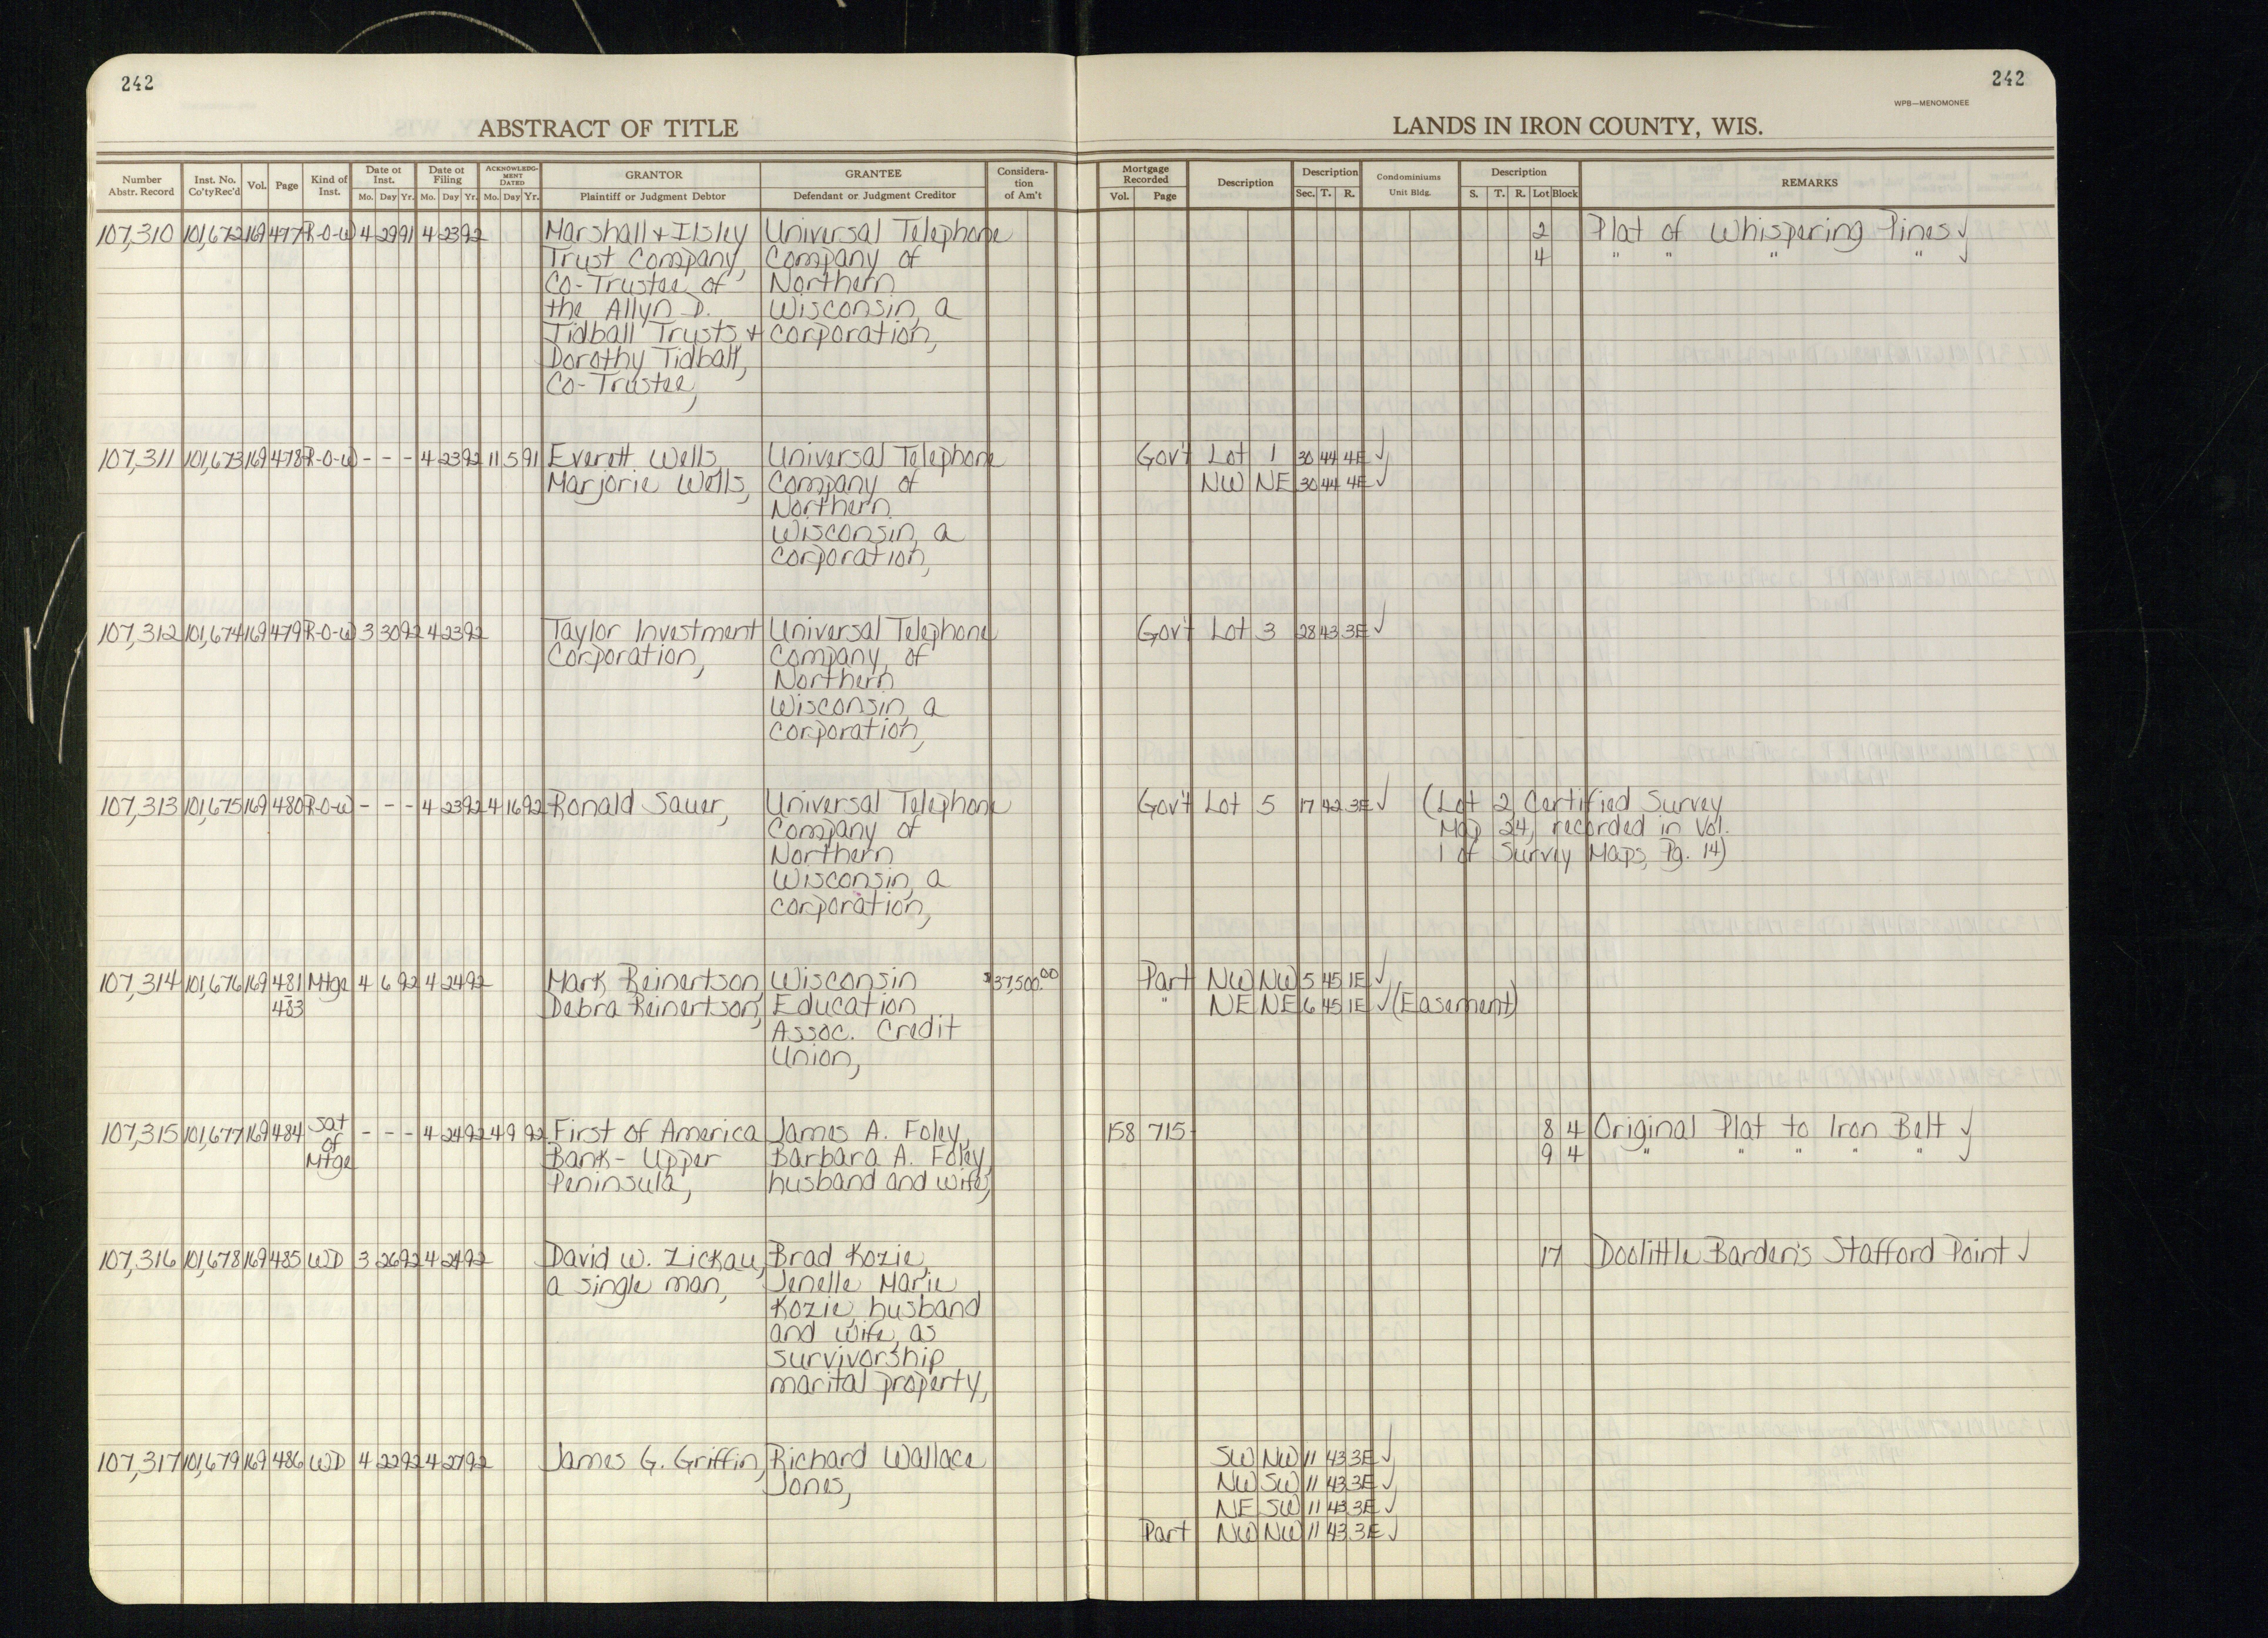 242
242
WPB—MENOMONEE
ABSTRACT OF TITLE
LANDS IN IRON COUNTY, WIS.
Number Abstr. Record | Inst. No. Co'ty Rec'd | Vol. | Page | Kind of Inst. | Date of Inst. Mo. Day Yr. | Date of Filing Mo. Day Yr. | ACKNOWLEDGMENT DATED Mo. Day Yr. | GRANTOR Plaintiff or Judgment Debtor | GRANTEE Defendant or Judgment Creditor | Consideration of Am't | Mortgage Recorded Vol. Page | Description | Description Sec. T. R. | Condominiums Unit Bldg. | Description S. T. R. Lot Block | REMARKS
107,310 101,672 169 477 R-O-W 4 29 91 4 23 92 Marshall + Ilsley Universal Telephone 2 Plat of Whispering Pines ✓
Trust Company, Company of 4 " " " " ✓
Co-Trustee of Northern
the Allyn D. Wisconsin, a
Tidball Trusts + corporation,
Dorothy Tidball,
Co-Trustee,
107,311 101,673 169 478 R-O-W - - - 4 23 92 11 5 91 Everett Wells Universal Telephone Gov't Lot 1 30 44 4E ✓
Marjorie Wells, Company of NW NE 30 44 4E ✓
Northern
Wisconsin, a
corporation,
107,312 101,674 169 479 R-O-W 3 30 92 4 23 92 Taylor Investment Universal Telephone Gov't Lot 3 28 43 3E ✓
Corporation, Company, of
Northern
Wisconsin, a
corporation,
107,313 101,675 169 480 R-O-W - - - 4 23 92 4 16 92 Ronald Sauer, Universal Telephone Gov't Lot 5 17 42 3E ✓ (Lot 2 Certified Survey
Company of Map 24, recorded in Vol.
Northern 1 of Survey Maps, Pg. 14)
Wisconsin, a
corporation,
107,314 101,676 169 481 Mtge 4 6 92 4 24 92 Mark Reinertson Wisconsin $37,500.00 Part NW NW 5 45 1E ✓
- 483 Debra Reinertson, Education " NE NE 6 45 1E ✓ (Easement)
Assoc. Credit
Union,
107,315 101,677 169 484 Sat of Mtge - - - 4 24 92 4 9 92 First of America James A. Foley, 158 715 8 4 Original Plat to Iron Belt ✓
Bank - Upper Barbara A. Foley, 9 4 " " " " " ✓
Peninsula, husband and wife,
107,316 101,678 169 485 WD 3 26 92 4 24 92 David W. Zickau, Brad Kozie, 17 Doolittle Barden's Stafford Point ✓
a single man, Jenelle Marie
Kozie, husband
and wife, as
survivorship
marital property,
107,317 101,679 169 486 WD 4 22 92 4 27 92 James G. Griffin, Richard Wallace SW NW 11 43 3E ✓
Jones, NW SW 11 43 3E ✓
NE SW 11 43 3E ✓
Part NW NW 11 43 3E ✓